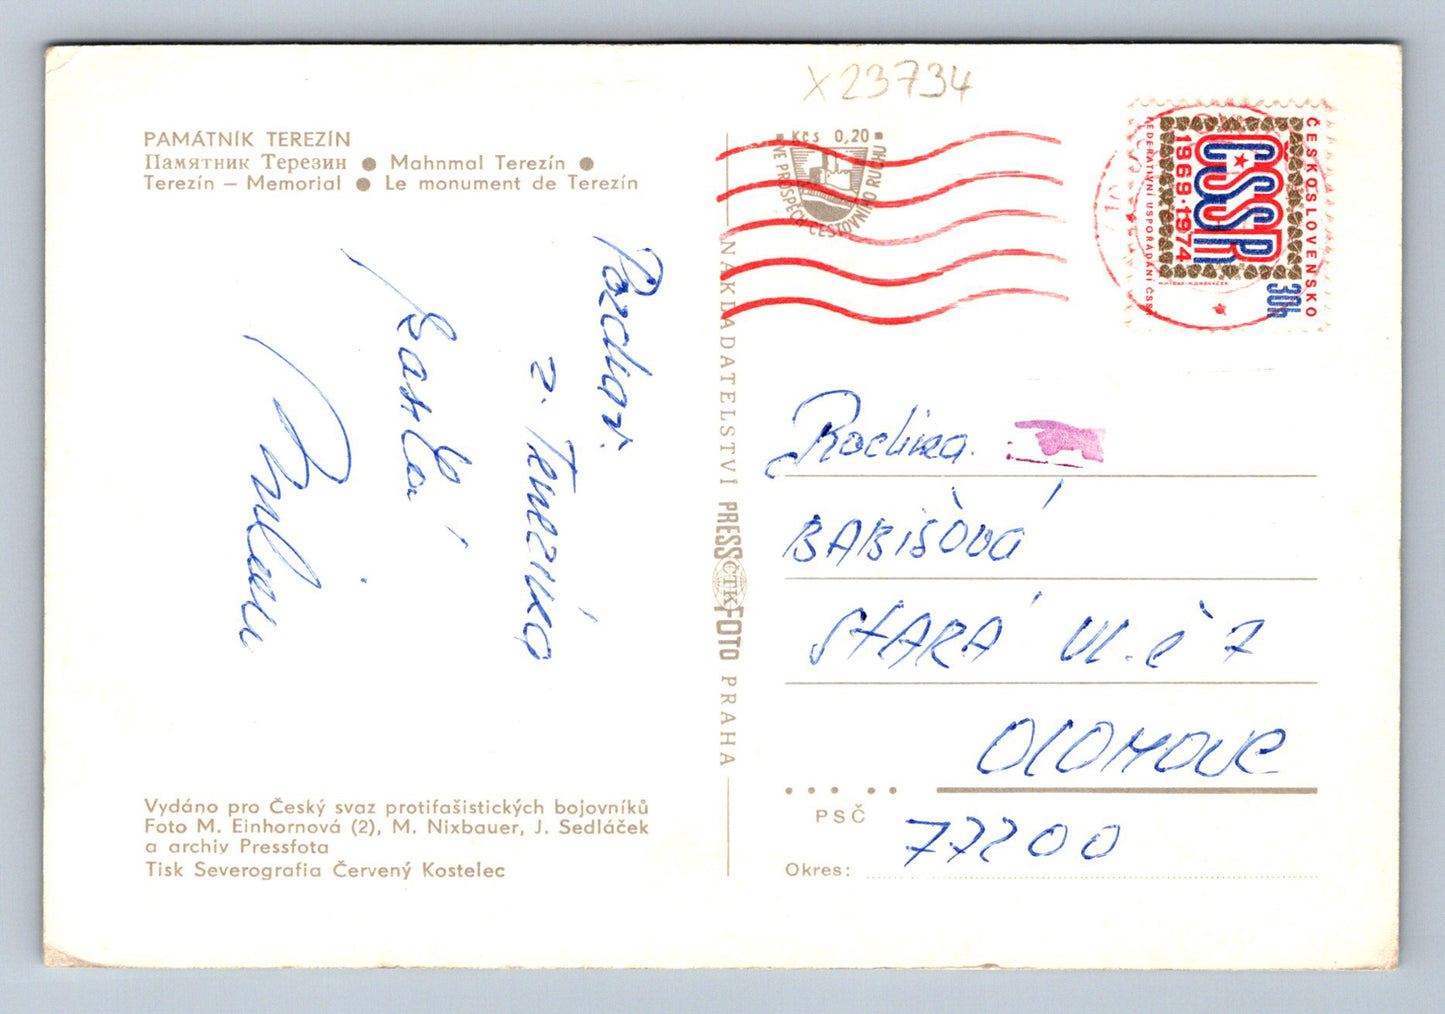 X23734
PAMÁTNÍK TEREZÍN
Памятник Терезин ● Mahnmal Terezín ●
Terezín – Memorial ● Le monument de Terezín
Pozdrav
z Terezína
Kčs 0,20
VE PROSPĚCH CESTOVNÍHO RUCHU
ČESKOSLOVENSKO
ČSSR
1969·1974
FEDERATIVNÍ USPOŘÁDÁNÍ ČSSR
30h
NAKLADATELSTVÍ PRESSFOTO PRAHA
ČTK
Rodina
BABIŠOVÁ
STARÁ UL. č 7
OLOMOUC
PSČ
77200
Okres:
Vydáno pro Český svaz protifašistických bojovníků
Foto M. Einhornová (2), M. Nixbauer, J. Sedláček
a archiv Pressfota
Tisk Severografia Červený Kostelec